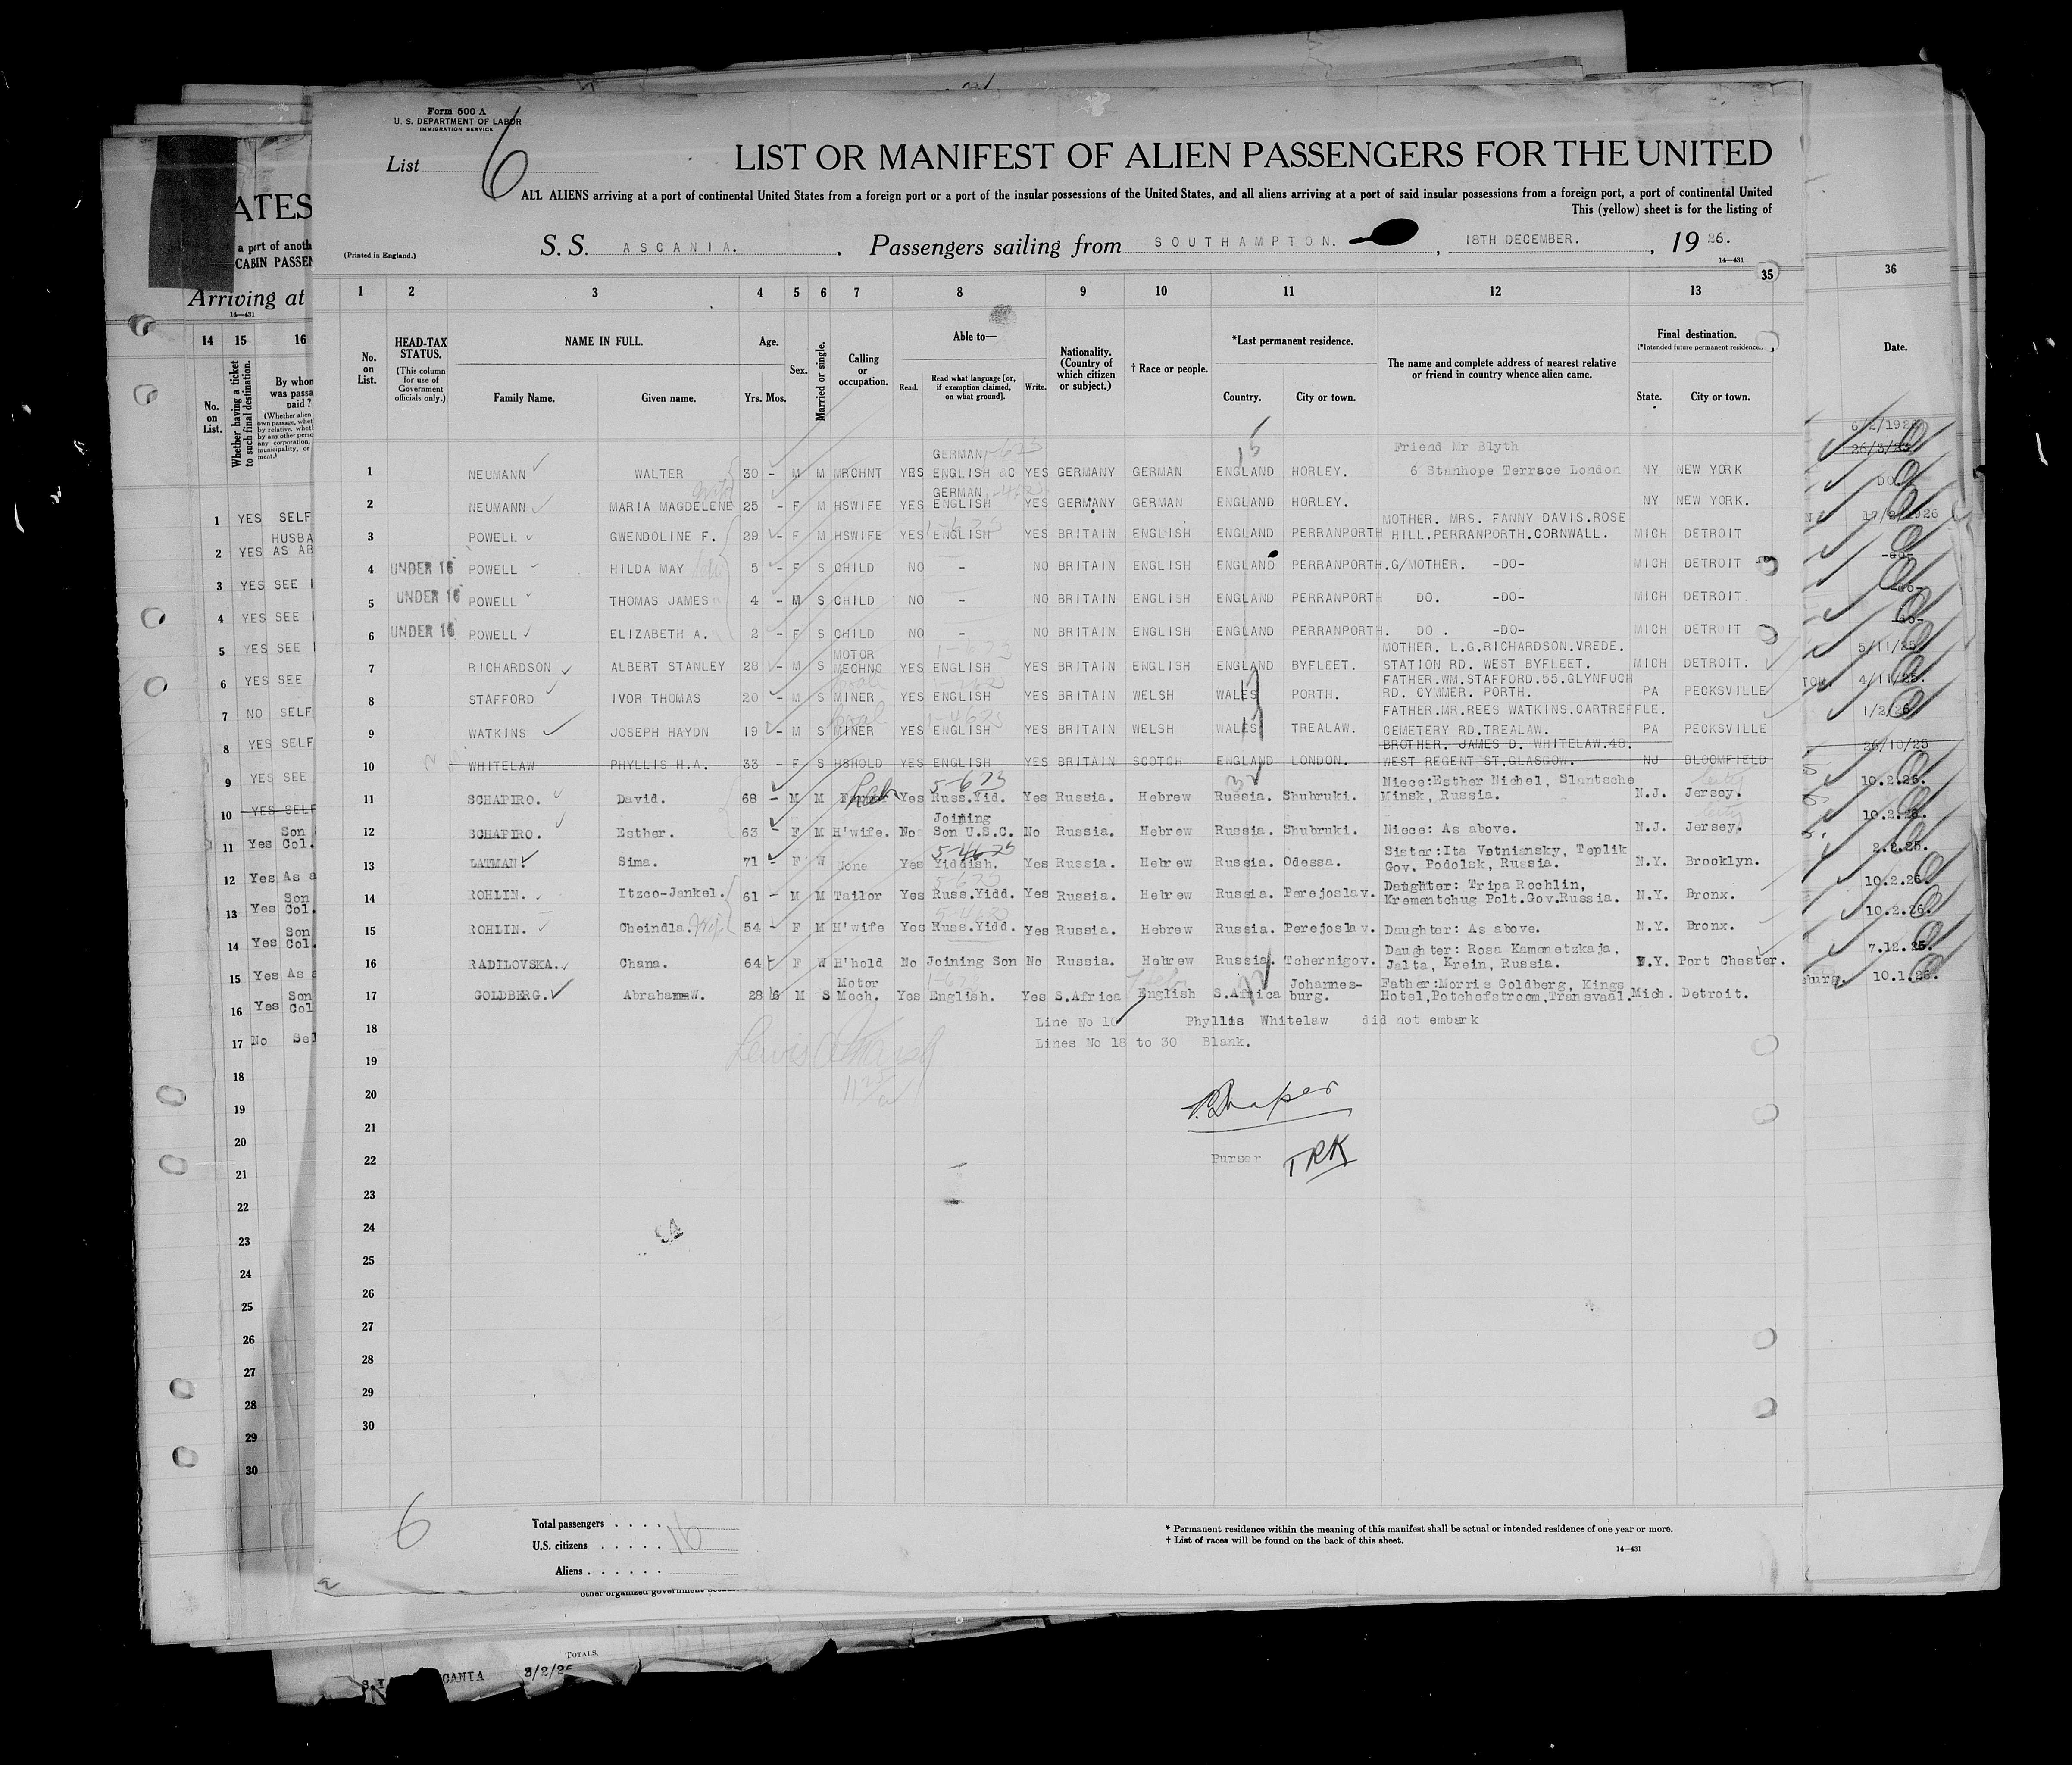 Form 500 A
U. S. DEPARTMENT OF LABOR
IMMIGRATION SERVICE
List 6
LIST OR MANIFEST OF ALIEN PASSENGERS FOR THE UNITED
ALL ALIENS arriving at a port of continental United States from a foreign port or a port of the insular possessions of the United States, and all aliens arriving at a port of said insular possessions from a foreign port, a port of continental United
This (yellow) sheet is for the listing of
(Printed in England.)
S. S. ASCANIA. , Passengers sailing from SOUTHAMPTON. , 18TH DECEMBER. , 1926.
14—431
35
1 2 3 4 5 6 7 8 9 10 11 12 13
No. on List.
HEAD-TAX STATUS.
(This column for use of Government officials only.)
NAME IN FULL.
Family Name. Given name.
Age.
Yrs. Mos.
Sex.
Married or single.
Calling or occupation.
Able to—
Read. Read what language [or, if exemption claimed, on what ground]. Write.
Nationality. (Country of which citizen or subject.)
† Race or people.
*Last permanent residence.
Country. City or town.
The name and complete address of nearest relative or friend in country whence alien came.
Final destination.
(*Intended future permanent residence.)
State. City or town.
GERMAN Friend Mr Blyth
1 NEUMANN WALTER 30 - M M MRCHNT YES ENGLISH &C YES GERMANY GERMAN ENGLAND HORLEY. 6 Stanhope Terrace London NY NEW YORK
GERMAN
2 NEUMANN MARIA MAGDELENE 25 - F M HSWIFE YES ENGLISH YES GERMANY GERMAN ENGLAND HORLEY. NY NEW YORK.
MOTHER. MRS. FANNY DAVIS.ROSE
3 POWELL GWENDOLINE F. 29 - F M HSWIFE YES ENGLISH YES BRITAIN ENGLISH ENGLAND PERRANPORTH HILL.PERRANPORTH.CORNWALL. MICH DETROIT
4 UNDER 16 POWELL HILDA MAY 5 - F S CHILD NO - NO BRITAIN ENGLISH ENGLAND PERRANPORTH. G/MOTHER. -DO- MICH DETROIT
5 UNDER 16 POWELL THOMAS JAMES 4 - M S CHILD NO - NO BRITAIN ENGLISH ENGLAND PERRANPORTH DO. -DO- MICH DETROIT.
6 UNDER 16 POWELL ELIZABETH A. 2 - F S CHILD NO - NO BRITAIN ENGLISH ENGLAND PERRANPORTH. DO. -DO- MICH DETROIT
MOTOR MOTHER. L.G.RICHARDSON.VREDE.
7 RICHARDSON ALBERT STANLEY 28 - M S MECHNC YES ENGLISH YES BRITAIN ENGLISH ENGLAND BYFLEET. STATION RD. WEST BYFLEET. MICH DETROIT.
FATHER.WM.STAFFORD.55.GLYNFUCH
8 STAFFORD IVOR THOMAS 20 - M S MINER YES ENGLISH YES BRITAIN WELSH WALES PORTH. RD. CYMMER. PORTH. PA PECKSVILLE
FATHER.MR.REES WATKINS.CARTREFFLE.
9 WATKINS JOSEPH HAYDN 19 - M S MINER YES ENGLISH YES BRITAIN WELSH WALES TREALAW. CEMETERY RD.TREALAW. PA PECKSVILLE
BROTHER. JAMES D. WHITELAW.48.
10 WHITELAW PHYLLIS H.A. 33 - F S HSHOLD YES ENGLISH YES BRITAIN SCOTCH ENGLAND LONDON. WEST REGENT ST.GLASGOW. NJ BLOOMFIELD
5-623 Niece:Esther Nichel, Slantsche
11 SCHAPIRO. David. 68 - M M Yes Russ.Yid. Yes Russia. Hebrew Russia. Shubruki. Minsk, Russia. N.J. Jersey.
Joining
12 SCHAPIRO. Esther. 63 - F M H'wife. No Son U.S.C. No Russia. Hebrew Russia. Shubruki. Niece: As above. N.J. Jersey.
5-4623 Sister:Ita Votniansky, Teplik
13 LATMAN Sima. 71 - F W None Yes Yiddish. Yes Russia. Hebrew Russia. Odessa. Gov. Podolsk, Russia. N.Y. Brooklyn.
Daughter: Tripa Rochlin,
14 ROHLIN. Itzco-Jankel. 61 - M M Tailor Yes Russ.Yidd. Yes Russia. Hebrew Russia. Perejoslav. Krementchug Polt.Gov.Russia. N.Y. Bronx.
15 ROHLIN. Cheindla. Wife 54 - F M H'wife Yes Russ.Yidd. Yes Russia. Hebrew Russia. Perejoslav. Daughter: As above. N.Y. Bronx.
Daughter: Rosa Kamenetzkaja,
16 RADILOVSKA. Chana. 64 F W H'hold No Joining Son No Russia. Hebrew Russia. Tchernigov. Jalta, Krein, Russia. N.Y. Port Chester.
Motor Johannes- Father:Morris Goldberg, Kings
17 GOLDBERG. Abraham W. 28 6 M S Mech. Yes English. Yes S.Africa English S.Africa burg. Hotel,Potchefstroom,Transvaal. Mich. Detroit.
18 Line No 10 Phyllis Whitelaw did not embark
Lines No 18 to 30 Blank.
19
20
21
22 Purser TRK
23
24
25
26
27
28
29
30
6
Total passengers . . . . 16
U.S. citizens . . . . .
Aliens . . . . . .
* Permanent residence within the meaning of this manifest shall be actual or intended residence of one year or more.
† List of races will be found on the back of this sheet.
14—431
ATES
a port of anoth
CABIN PASSEN
Arriving at
14—431
14 15 16
No. on List.
Whether having a ticket to such final destination.
By whom was passage paid?
1 YES SELF
HUSBA
2 YES AS AB
3 YES SEE
4 YES SEE
5 YES SEE
6 YES SEE
7 NO SELF
8 YES SELF
9 YES SEE
10 YES SELF
Son
11 Yes Col.
12 Yes As a
Son
13 Yes Col.
Son
14 Yes Col.
15 Yes As a
Son
16 Yes Col
17 No Sel
18
19
20
21
22
23
24
25
26
27
28
29
30
36
Date.
26/3/25
DO
17/2/1926
-do-
-do-
-do-
5/11/25
4/11/25.
1/2/26
26/10/25
10.2.26.
10.2.26.
2.2.25.
10.2.26.
10.2.26.
7.12.25.
10.1.26.
TOTALS.
CANIA 3/2/26